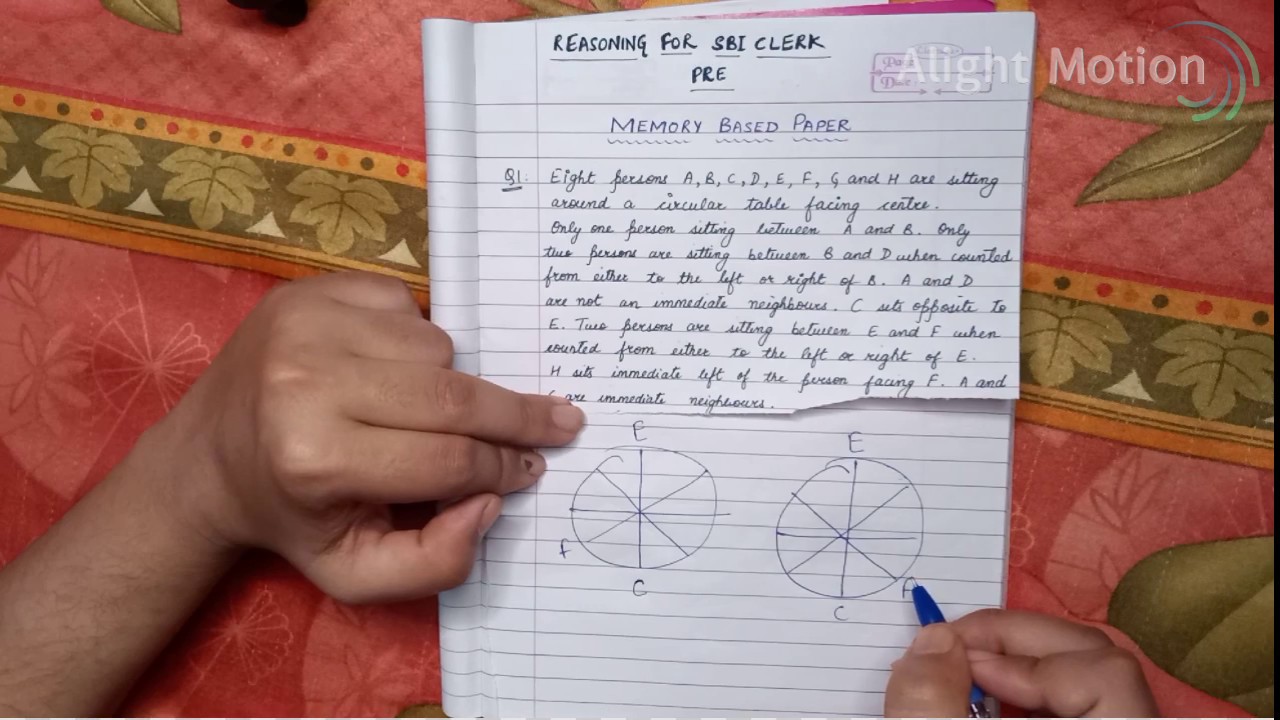 REASONING FOR SBI CLERK
PRE
Alight Motion
Page
Date
MEMORY BASED PAPER
Q1: Eight persons A, B, C, D, E, F, G and H are sitting
around a circular table facing centre.
Only one person sitting between A and B. Only
two persons are sitting between B and D when counted
from either to the left or right of B. A and D
are not an immediate neighbours. C sits opposite to
E. Two persons are sitting between E and F when
counted from either to the left or right of E.
H sits immediate left of the person facing F. A and
are immediate neighbours.
E
E
F
C
C